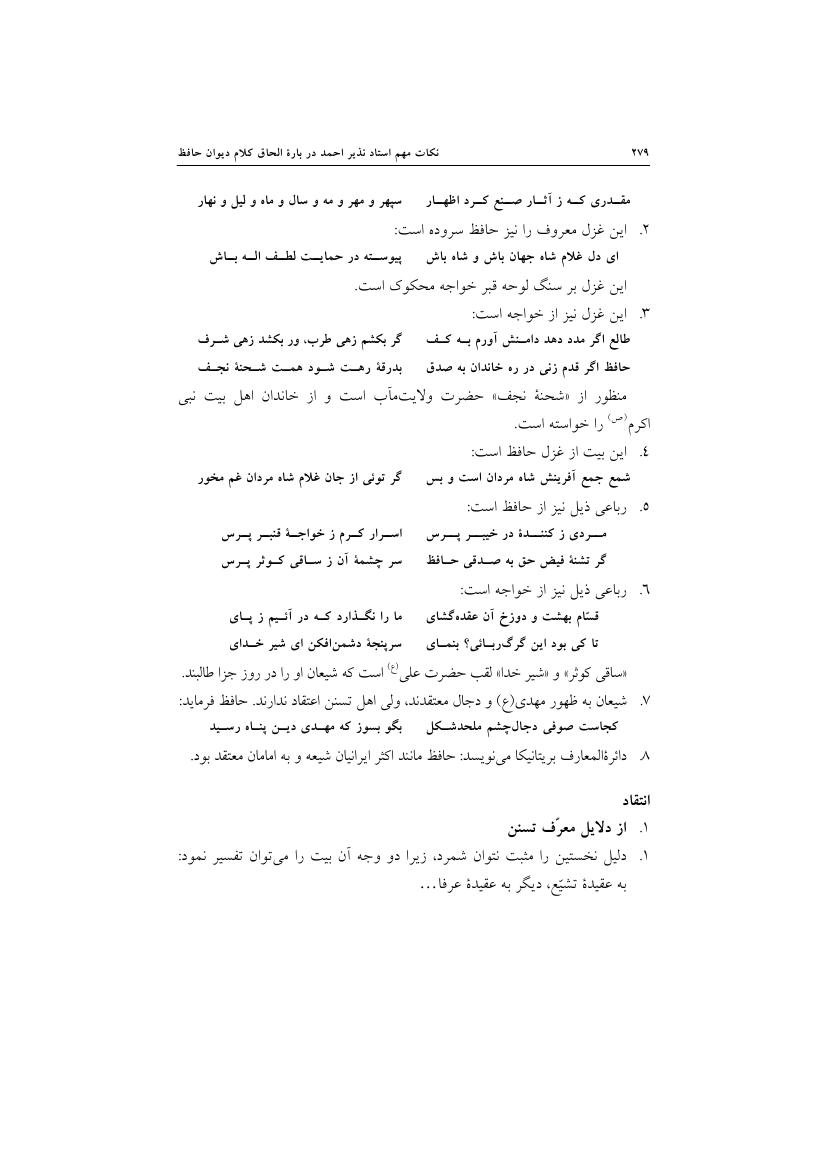 ۲۷۹ نکات مهم استاد نذیر احمد در بارهٔ الحاق کلام دیوان حافظ
مقدری که ز آثار صنع کرد اظهار سپهر و مهر و مه و سال و ماه و لیل و نهار
۲. این غزل معروف را نیز حافظ سروده است:
ای دل غلام شاه جهان باش و شاه باش پیوسته در حمایت لطف اله باش
این غزل بر سنگ لوحه قبر خواجه محکوک است.
۳. این غزل نیز از خواجه است:
طالع اگر مدد دهد دامنش آورم به کف گر بکشم زهی طرب، ور بکشد زهی شرف
حافظ اگر قدم زنی در ره خاندان به صدق بدرقهٔ رهت شود همت شحنهٔ نجف
منظور از «شحنهٔ نجف» حضرت ولایت‌مآب است و از خاندان اهل بیت نبی
اکرم(ص) را خواسته است.
۴. این بیت از غزل حافظ است:
شمع جمع آفرینش شاه مردان است و بس گر توئی از جان غلام شاه مردان غم مخور
۵. رباعی ذیل نیز از حافظ است:
مردی ز کنندهٔ در خیبر پرس اسرار کرم ز خواجهٔ قنبر پرس
گر تشنهٔ فیض حق به صدقی حافظ سر چشمهٔ آن ز ساقی کوثر پرس
۶. رباعی ذیل نیز از خواجه است:
قسّام بهشت و دوزخ آن عقده‌گشای ما را نگذارد که در آئیم ز پای
تا کی بود این گرگ‌ربائی؟ بنمای سرپنجهٔ دشمن‌افکن ای شیر خدای
«ساقی کوثر» و «شیر خدا» لقب حضرت علی(ع) است که شیعان او را در روز جزا طالبند.
۷. شیعان به ظهور مهدی(ع) و دجال معتقدند، ولی اهل تسنن اعتقاد ندارند. حافظ فرماید:
کجاست صوفی دجال‌چشم ملحدشکل بگو بسوز که مهدی دین پناه رسید
۸. دائرةالمعارف بریتانیکا می‌نویسد: حافظ مانند اکثر ایرانیان شیعه و به امامان معتقد بود.
انتقاد
۱. از دلایل معرّف تسنن
۱. دلیل نخستین را مثبت نتوان شمرد، زیرا دو وجه آن بیت را می‌توان تفسیر نمود:
به عقیدهٔ تشیّع، دیگر به عقیدهٔ عرفا...